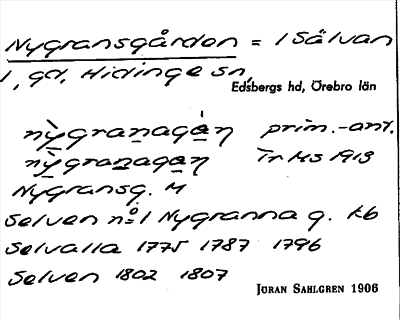 Nygransgården = 1 Sälvan
1, gd, Hidinge sn,
Edsbergs hd, Örebro län
nỳgranagáŋ prim.-ant.
nỳgranagaŋ Tr Ms 1913
Nygransg. M
Selven nº1 Nygranna g. kb
Selvalla 1775 1787 1796
Selven 1802 1807
JÖRAN SAHLGREN 1906